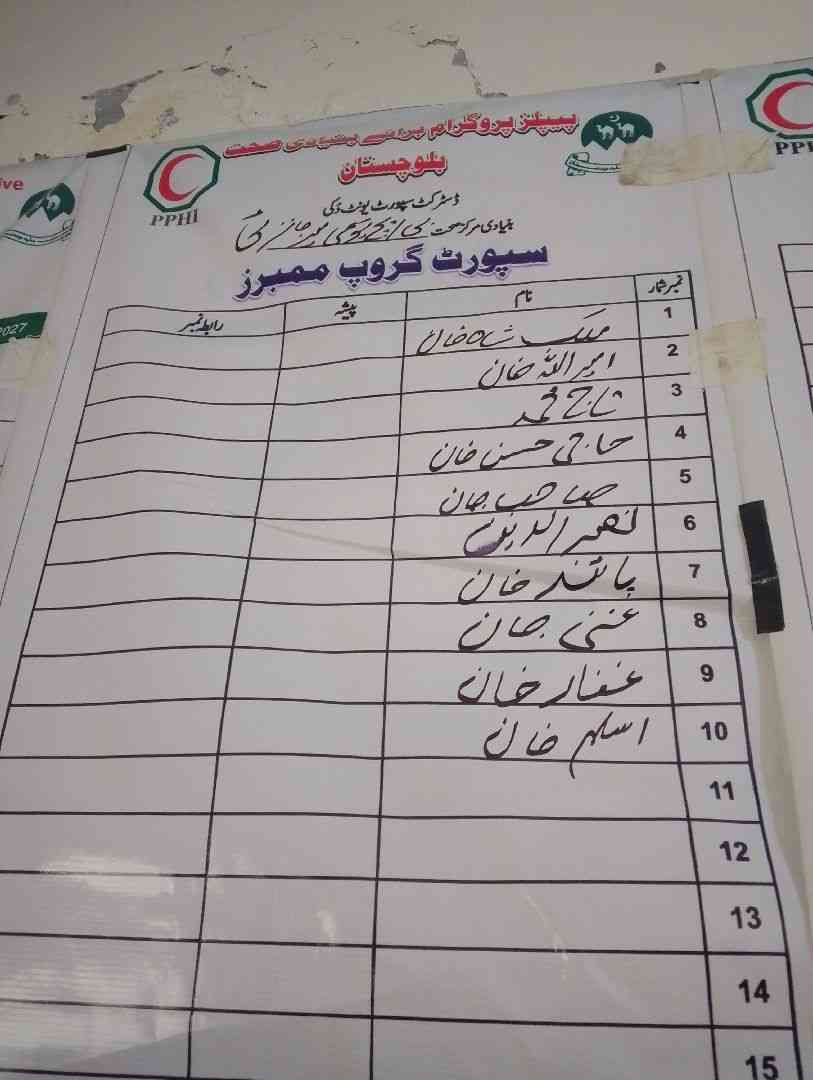 پیپلز پروگرام برائے بنیادی صحت
بلوچستان
PPHI
ڈسٹرکٹ سپورٹ یونٹ ڈکی
بنیادی مرکز صحت
سپورٹ گروپ ممبرز
نمبر شمار نام پیشہ رابطہ نمبر
1 ملک شاہ خان
2 امیر اللہ خان
3 تاج محمد
4 حاجی حسن خان
5 صاحب جان
6 نصیر الدین
7 پائند خان
8 غنی جان
9 غفار خان
10 اسلم خان
11
12
13
14
15
ive
2027
PPH